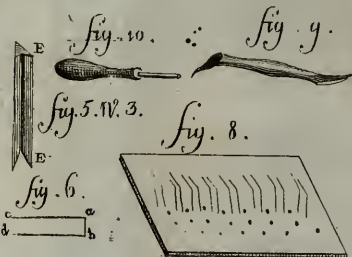 fig. 10.
fig. 9.
E
fig. 5. N. 3.
fig. 8.
E
fig. 6.
c a
d b